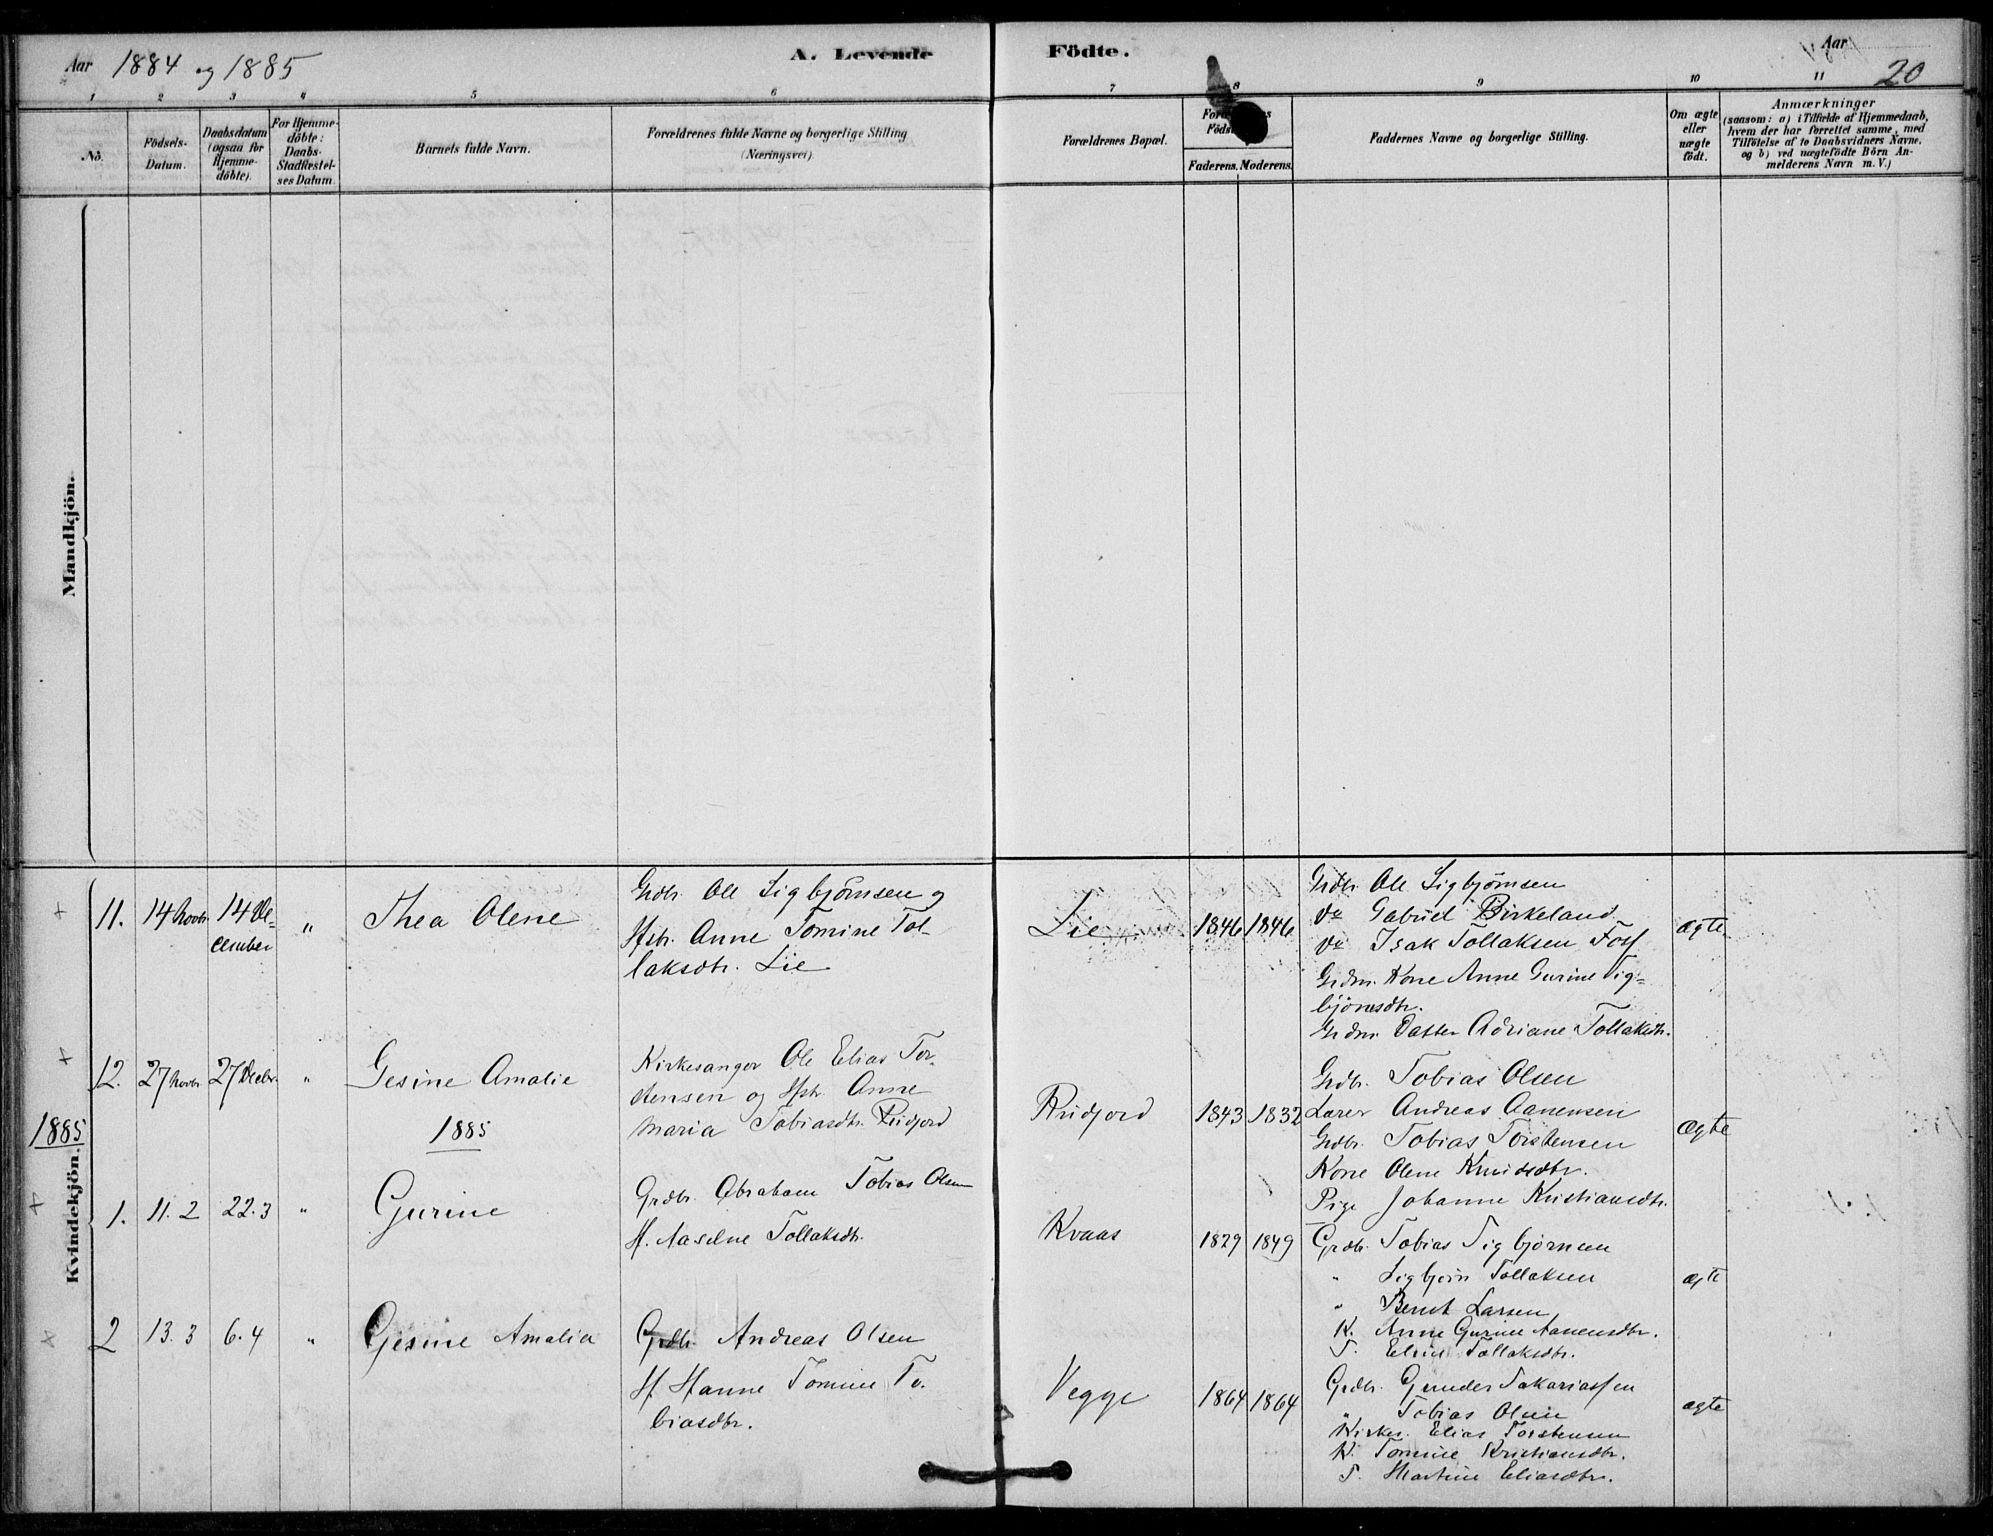 Aar 1884 og 1885
A. Levende Födte.
Aar
20
1 2 3 4 5 6 7 8 9 10 11
No.
Födsels-Datum.
Daabsdatum (ogsaa for Hjemme-döbte).
For Hjemme-döbte: Daabs-Stadfæstel-ses Datum.
Barnets fulde Navn.
Forældrenes fulde Navne og borgerlige Stilling (Næringsvei).
Forældrenes Bopæl.
Faderens. Moderens.
Faddernes Navne og borgerlige Stilling.
Om ægte eller uægte födt.
Anmærkninger
(saasom: a) i Tilfælde af Hjemmedaab,
hvem der har forrettet samme, med
Tilföielse af to Daabsvidners Navne,
og b) ved uægtefödte Börn An-
melderens Navn m. V.)
Mandkjön.
Kvindekjön.
11. 14 Novbr 14 De-
cember
"
Thea Olene
Grdbr. Ole Sigbjörnsen og
Hstr. Anne Tomine Tol-
laksdtr. Lie
Lie
1846 1846
Grdbr. Ole Sigbjörnsen
do Gabriel Birkeland
do Isak Tollaksen Foss
Grdm. Kone Anne Gurine Sig-
björnsdtr.
Grdm. Datter Adriane Tollaksdtr.
ægte
12. 27 Novbr 27 Decbr. "
Gesine Amalie
Kirkesanger Ole Elias Tor-
stensen og Hstr. Anne
Maria Tobiasdtr. Ruidjord
Ruidjord
1843 1832
Grdbr. Tobias Olsen
Lærer Andreas Aanensen
Grdbr. Tobias Torstensen
Kone Olene Knudsdtr.
Pige Johanne Kristiansdtr.
Ægte
1885
1885
1. 11.2 22.3 "
Gurine
Grdbr. Abraham Tobias Olsen
H. Aaselne Tollaksdtr.
Kvaas
1829 1849
Grdbr. Tobias Sigbjörnsen
" Sigbjörn Tollaksen
" Bernt Larsen
K. Anne Gurine Aanensdtr.
P. Elise Tollaksdtr.
ægte
2 13.3 6.4 "
Gesine Amalia
Grdbr. Andreas Olsen
H Hanne Tomine To-
biasdtr.
Vegge
1864 1864
Grdbr. Gunder Sakariassen
" Tobias Olsen
Kirkes. Elias Torstensen
K. Tomine Kristiansdtr.
P. Martine Eliasdtr.
ægte